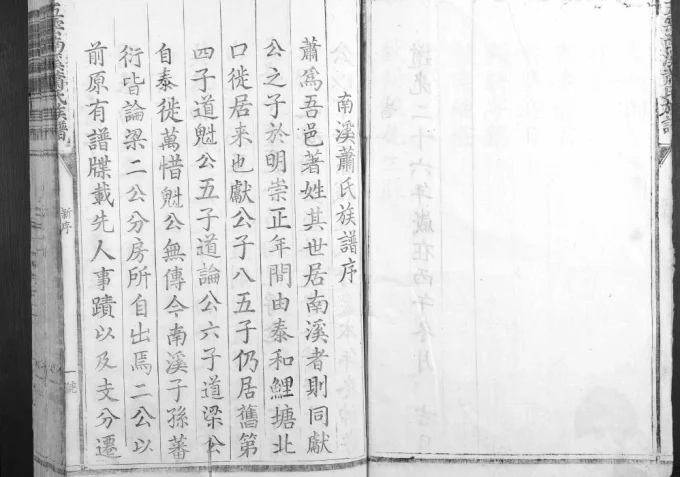 南溪蕭氏族譜序
蕭爲吾邑著姓其世居南溪者則同獻
公之子於明崇正年間由泰和鯉塘北
口徙居来也獻公子八五子仍居舊第
四子道魁公五子道論公六子道梁公
自泰徙萬惜魁公無傳今南溪子孫蕃
衍皆論梁二公分房所自出焉二公以
前原有譜牒載先人事蹟以及支分遷
新序
一
道光二十六年歲在丙午冬月